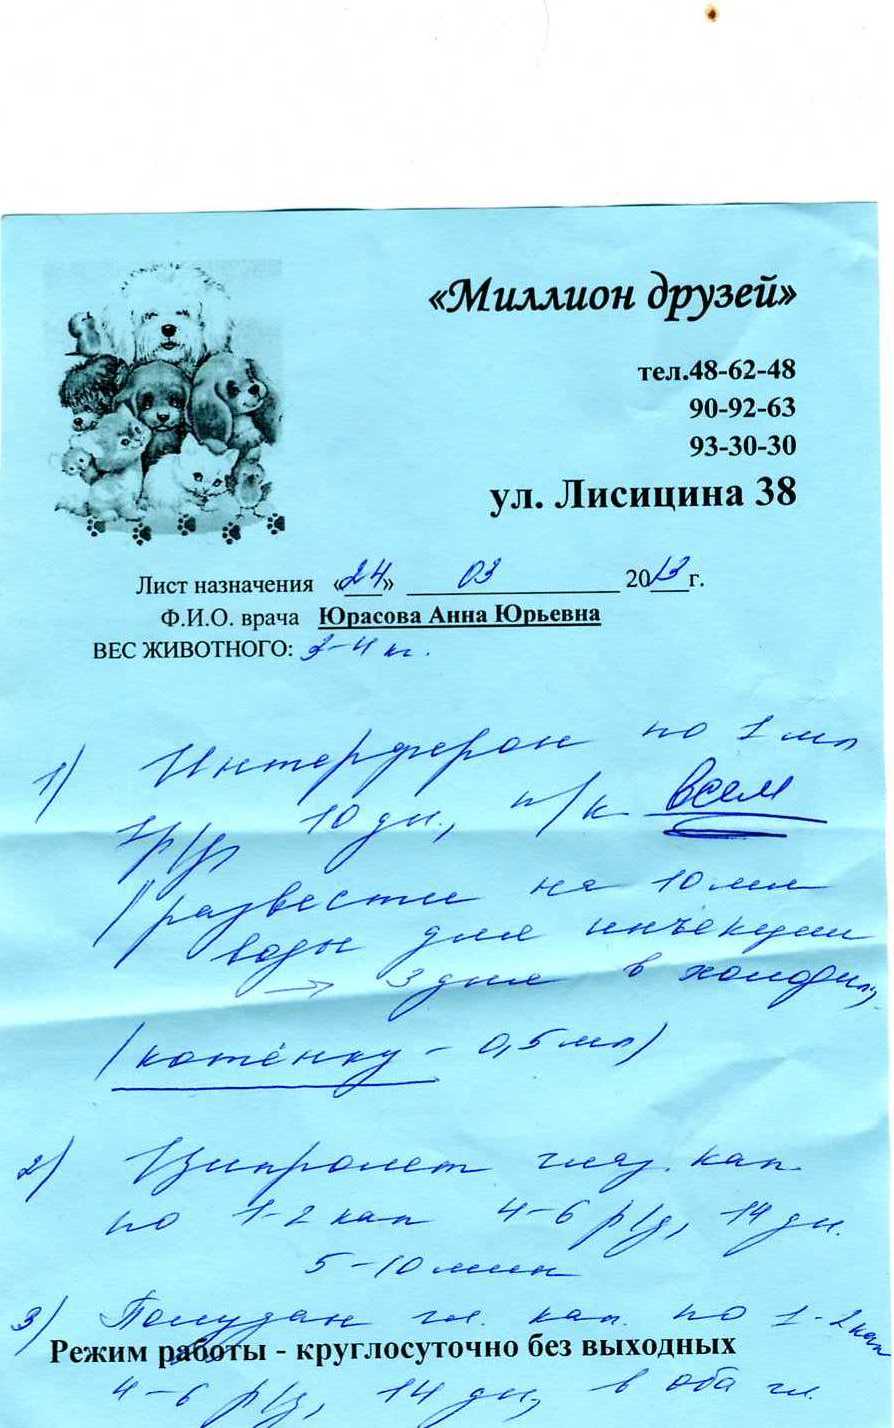 «Миллион друзей»
тел.48-62-48
90-92-63
93-30-30
ул. Лисицина 38
Лист назначения «24» 03 2013г.
Ф.И.О. врача Юрасова Анна Юрьевна
ВЕС ЖИВОТНОГО: 3-4 кг.
1) Интерферон по 1 мл
1р/д, 10 дн., п/к всем
(развести на 10 мл
воды для инъекции
→ 3 дня в холодил.)
(котёнку - 0,5 мл)
2) Ципролет глаз. кап.
по 1-2 кап 4-6 р/д, 14 дн.
5-10 мин
3) Полудан гл. кап. по 1-2 кап
Режим работы - круглосуточно без выходных
4-6 р/д, 14 дн, в оба гл.